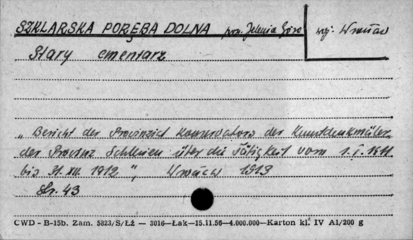 SZKLARSKA PORĘBA DOLNA pow. Jelenia Góra woj. Wrocław
Stary cmentarz
„Bericht der Provinzial Konservators der Kunstdenkmäler
der Provinz Schlesien über die Tätigkeit vom 1.I.1911
bis 31.XII.1912.", Wrocław 1913
Str. 43
CWD - B-15b. Zam. 5823/S/ŁŻ — 3016—Łak—15.11.56—4.000.000—Karton kl. IV A1/200 g